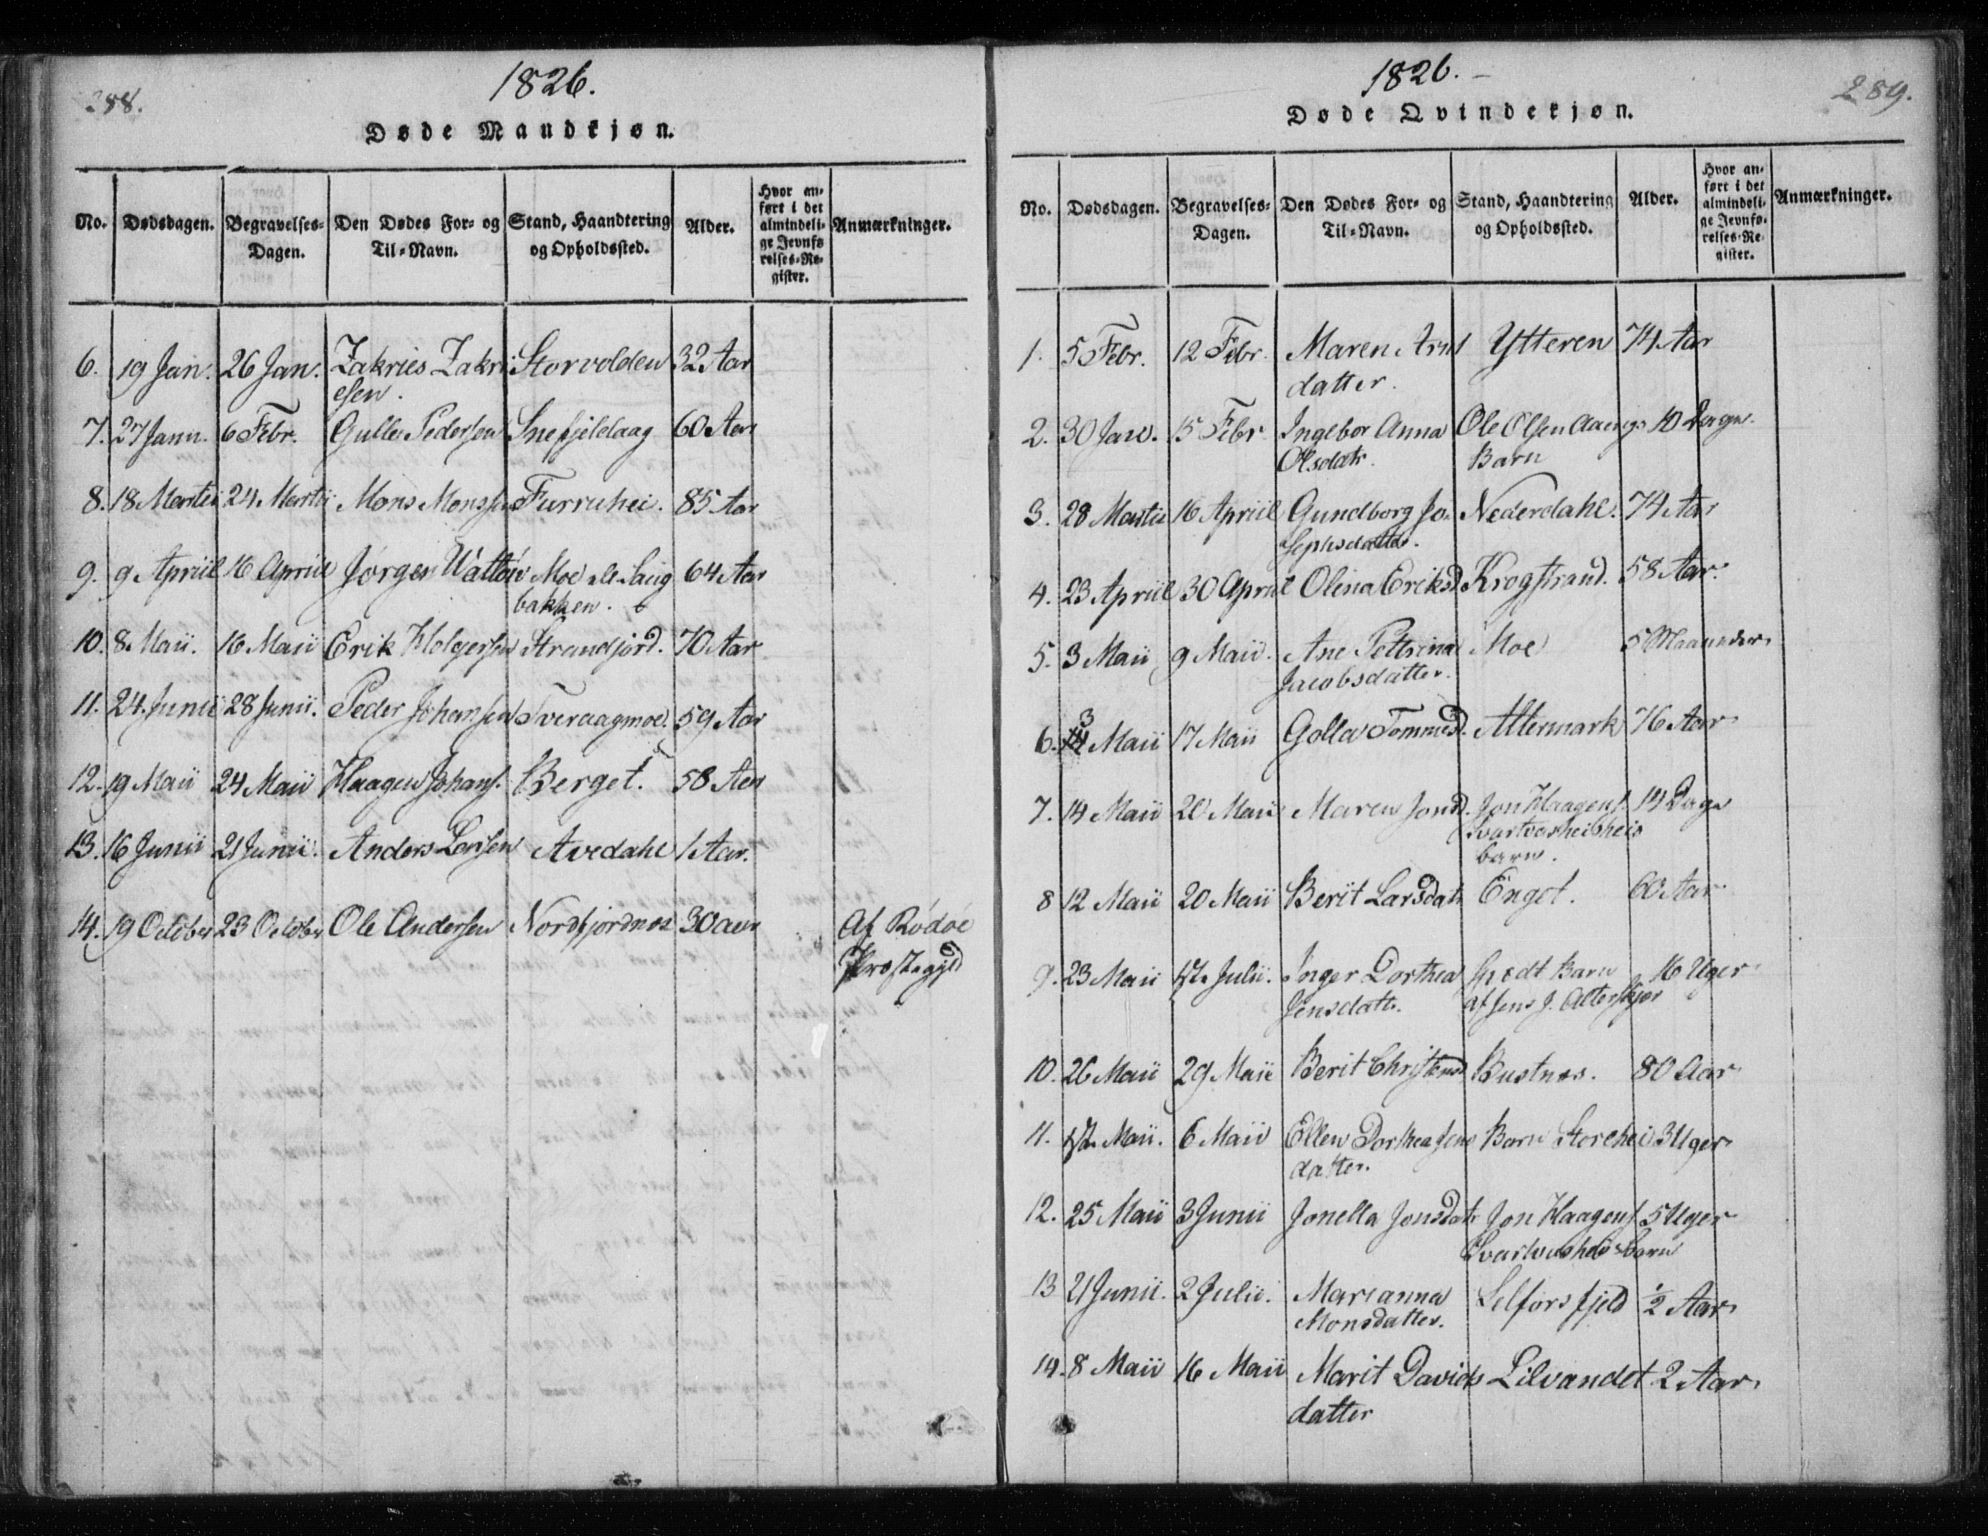 288.
1826.
Døde Mandkjøn.
No. Dødsdagen. Begravelses-Dagen. Den Dødes For- og Til-Navn. Stand, Haandtering og Opholdssted. Alder. Hvor anført i det almindelige Jevnførelses-Register. Anmærkninger.
6. 19 Jan. 26 Jan. Zakries Zakri Storvolden 32 Aar
esen.
7. 27 Janu. 6 Febr. Gulle Pedersen Snefjeldaag 60 Aar
8. 18 Martii 24 Martii Mons Monssen Furruhei. 85 Aar
9. 9 Apriil 16 Apriil Jørgen Wattøe Moe
bakken. 64 Aar
10. 8. Maii. 16 Maii Erik Holgersen Strandjord. 70 Aar
11. 24. Junii 28 Junii. Peder Johansen Tveraagmoe. 59 Aar
12. 19 Maii 24 Maii Haagen Johans. Berget. 58 Aar
13. 16 Junii 21 Junii. Anders Larsen Avedahl 1 Aar.
14. 19 October 23 October Ole Andersen Nordfjordnes 30 aar Af Rødøe
Præstegjld
1826.
289.
Døde Qvindekjøn.
No. Dødsdagen. Begravelses-Dagen. Den Dødes For- og Til-Navn. Stand, Haandtering og Opholdssted. Alder. Hvor anført i det almindelige Jevnførelses-Register. Anmærkninger.
1. 5 Febr. 12 Febr. Maren Arnt Ytteren 74 Aar
datter.
2. 30 Jan. 15 Febr Ingebor Anna Ole Olsen 10 Dage.
Olsdatr. Barn
3. 28 Martii 16 Apriil Gundborg Jo- Nederdahl. 74 Aar
sephsdatter.
4. 23 Apriil 30 Apriil Olina Eriksd. Krogstrand. 58 Aar.
5. 3 Maii 9 Maii. Ane Pettrina Moe 5 Maaneder
Jacobsdatter.
6. 13 Maii 17 Maii Golla Tommesd. Altermark 76 Aar
7. 14 Maii 20 Maii Maren Jonsd. Jon Haagens. 14 Dage
Svartvasheis
barn.
8 12 Maii 20 Maii Berit Larsdatr Enget. 60 Aar
9. 23 Maii 1st. Julii. Inger Dorthea Spædt Barn 16 Uger
Jensdatr. af Jens J. Alterskjær
10. 26 Maii 29 Maii Berit Christensd Bustnes. 80 Aar
11. 1st. Maii. 6 Maii Ellen Dorthea Jens Barn Storehei 3 Uger
datter.
12. 25 Maii 3 Junii Jonella Jonsdatr Jon Haagens. 5 Uger
Svartvasheis barn
13 21 Junii. 2 Julii. Marianna Selforsfjeld ½ Aar
Monsdatter.
14. 8 Maii 16 Maii Marit Davids Lilvandet 2 Aar
datter